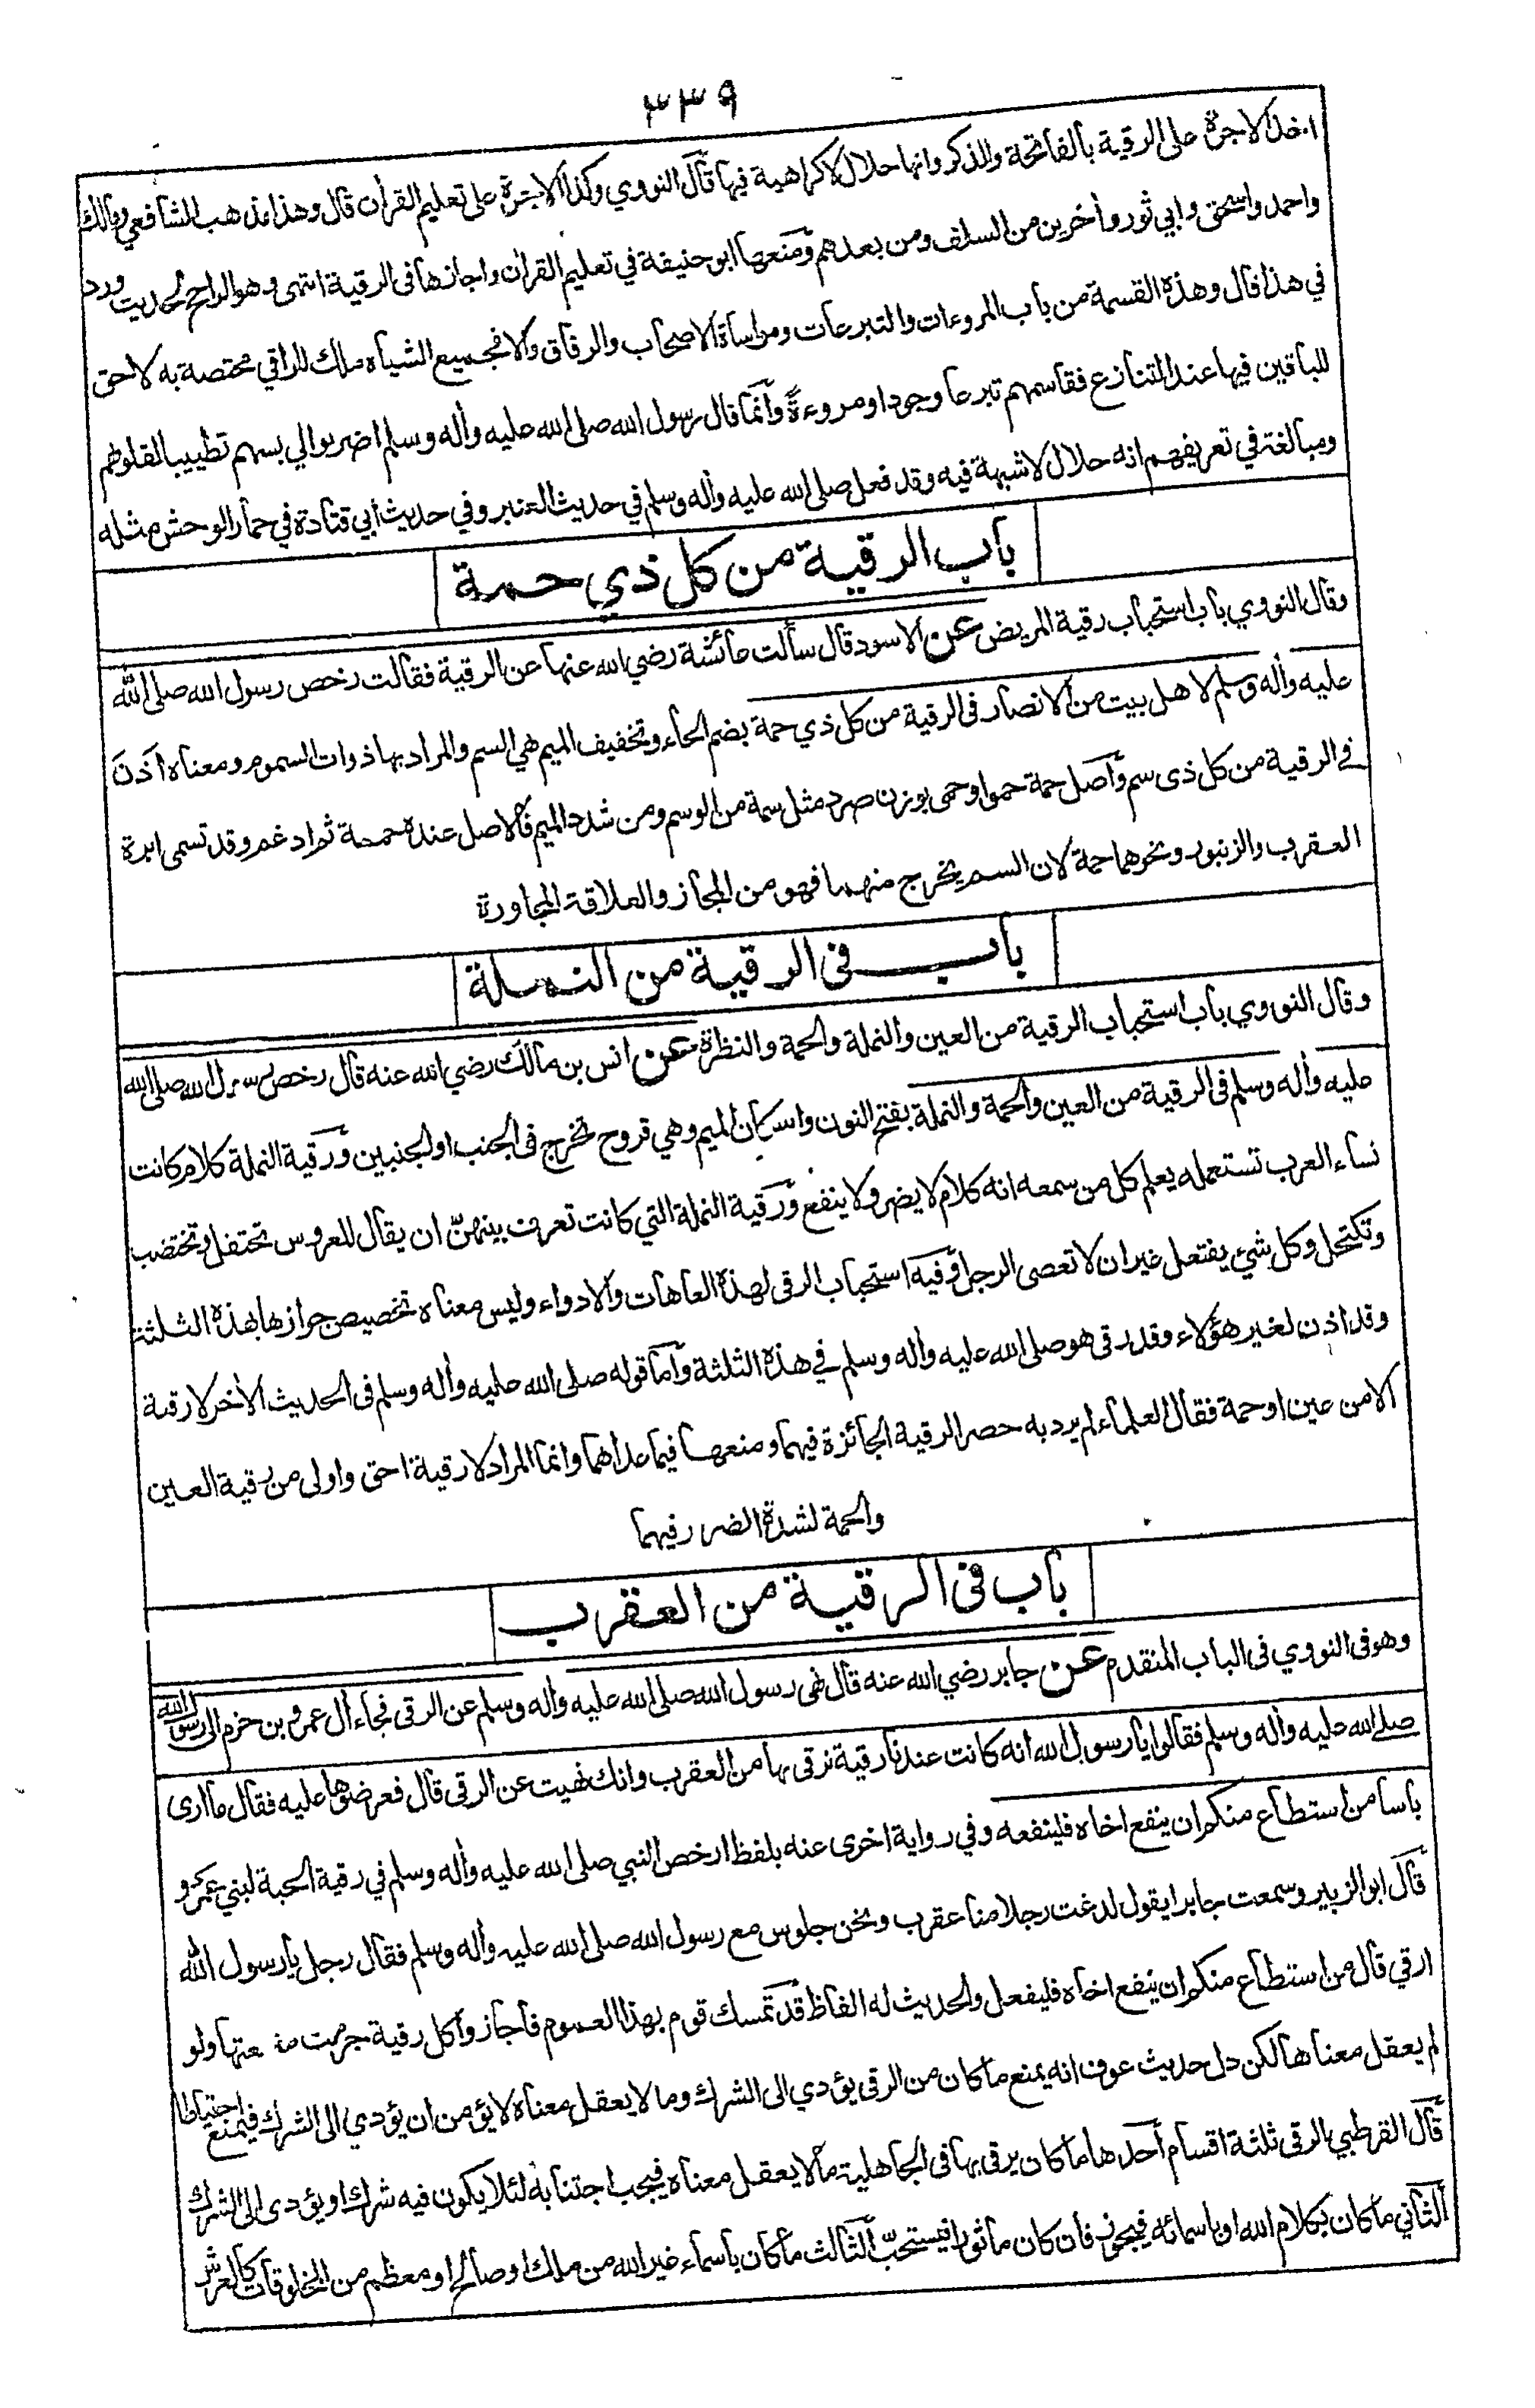 ٣٣٩
اخذ الاجرة على الرقية بالفاتحة والذكر وانها حلال لا كراهية فيها قال النووي وكذا الاجرة على تعليم القرأن قال وهذا مذهب الشافعي ومالك
واحمد واسحق وابي ثور وأخرين من السلف ومن بعدهم ومنعها ابو حنيفة في تعليم القرأن واجازها فى الرقية انتهى وهو الراجح لحديث ورد
في هذا قال وهذه القسمة من باب المروءات والتبرعات ومواساة الاصحاب والرفاق والا فجميع الشياه ملك للراقي مختصة به لا حق
للباقين فيها عند التنازع فقاسمهم تبرعا وجودا ومروءةً وانما قال رسول الله صلى الله عليه وأله وسلم اضربوا لي بسهم تطييبا لقلوبهم
ومبالغة في تعريفهم انه حلال لا شبهة فيه وقد فعل صلى الله عليه وأله وسلم في حديث العنبر وفي حديث أبي قتادة في حمار الوحش مثله
باب الرقية من كل ذي حمة
وقال النووي باب استحباب رقية المريض عن الاسود قال سألت عائشة رضي الله عنها عن الرقية فقالت رخص رسول الله صلى الله
عليه وأله وسلم لاهل بيت من الانصار فى الرقية من كل ذي حمة بضم الحاء وتخفيف الميم هي السم والمراد بها ذوات السموم ومعناه أذن
في الرقية من كل ذى سم وأصل حمة حموا وحمى بوزن صرد مثل سمة من الوسم ومن شدد الميم فالاصل عنده حممة ثم ادغم وقد تسمى ابرة
العقرب والزنبور ونحوهما حمة لان السم يخرج منهما فهو من المجاز والعلاقة المجاورة
باب فى الرقية من النملة
وقال النووي باب استحباب الرقية من العين والنملة والحمة والنظرة عن انس بن مالك رضي الله عنه قال رخص رسول الله صلى الله
عليه وأله وسلم فى الرقية من العين والحمة والنملة بفتح النون واسكان الميم وهي قروح تخرج فى الجنب او الجنبين ورقية النملة كلام كانت
نساء العرب تستعمله يعلم كل من سمعه انه كلام لا يضر ولا ينفع ورقية النملة التي كانت تعرف بينهنّ ان يقال للعروس تحتفل وتختضب
وتكتحل وكل شيء يفتعل غير ان لا تعصى الرجل وفيه استحباب الرقى لهذه العاهات والادواء وليس معناه تخصيص جوازها بهذه الثلثة
وقد اذن لغير هؤلاء وقد رقى هو صلى الله عليه وأله وسلم في هذه الثلثة وأما قوله صلى الله عليه وأله وسلم فى الحديث الأخر لا رقية
الا من عين او حمة فقال العلماء لم يرد به حصر الرقية الجائزة فيهما ومنعها فيما عداهما وانما المراد لا رقية احق واولى من رقية العين
والحمة لشدة الضرر فيهما
باب فى الرقية من العقرب
وهو فى النووي فى الباب المتقدم عن جابر رضي الله عنه قال نهى رسول الله صلى الله عليه وأله وسلم عن الرقى فجاء أل عمرو بن حزم الى رسول الله
صلى الله عليه وأله وسلم فقالوا يا رسول الله انه كانت عندنا رقية نرقى بها من العقرب وانك نهيت عن الرقى قال فعرضوها عليه فقال ما ارى
باسا من استطاع منكم ان ينفع اخاه فلينفعه وفي رواية اخرى عنه بلفظ ارخص النبي صلى الله عليه وأله وسلم في رقية الحية لبني عمرو
قال ابو الزبير وسمعت جابرا يقول لدغت رجلا منا عقرب ونحن جلوس مع رسول الله صلى الله عليه وأله وسلم فقال رجل يا رسول الله
ارقي قال من استطاع منكم ان ينفع اخاه فليفعل والحديث له الفاظ قد تمسك قوم بهذا العموم فاجازوا كل رقية جربت منفعتها ولو
لم يعقل معناها لكن دل حديث عوف انه يمنع ما كان من الرقى يؤدي الى الشرك وما لا يعقل معناه لا يؤمن ان يؤدي الى الشرك فيمنع احتياطا
قال القرطبي الرقى ثلثة اقسام أحدها ما كان يرقى بها فى الجاهلية مما لا يعقل معناه فيجب اجتنابه لئلا يكون فيه شرك او يؤدى الى الشرك
الثاني ما كان بكلام الله او باسمائه فيجوز فان كان مأثورا فيستحبّ الثالث ما كان باسماء غير الله من ملك او صالح او معظم من المخلوقات كالعرش